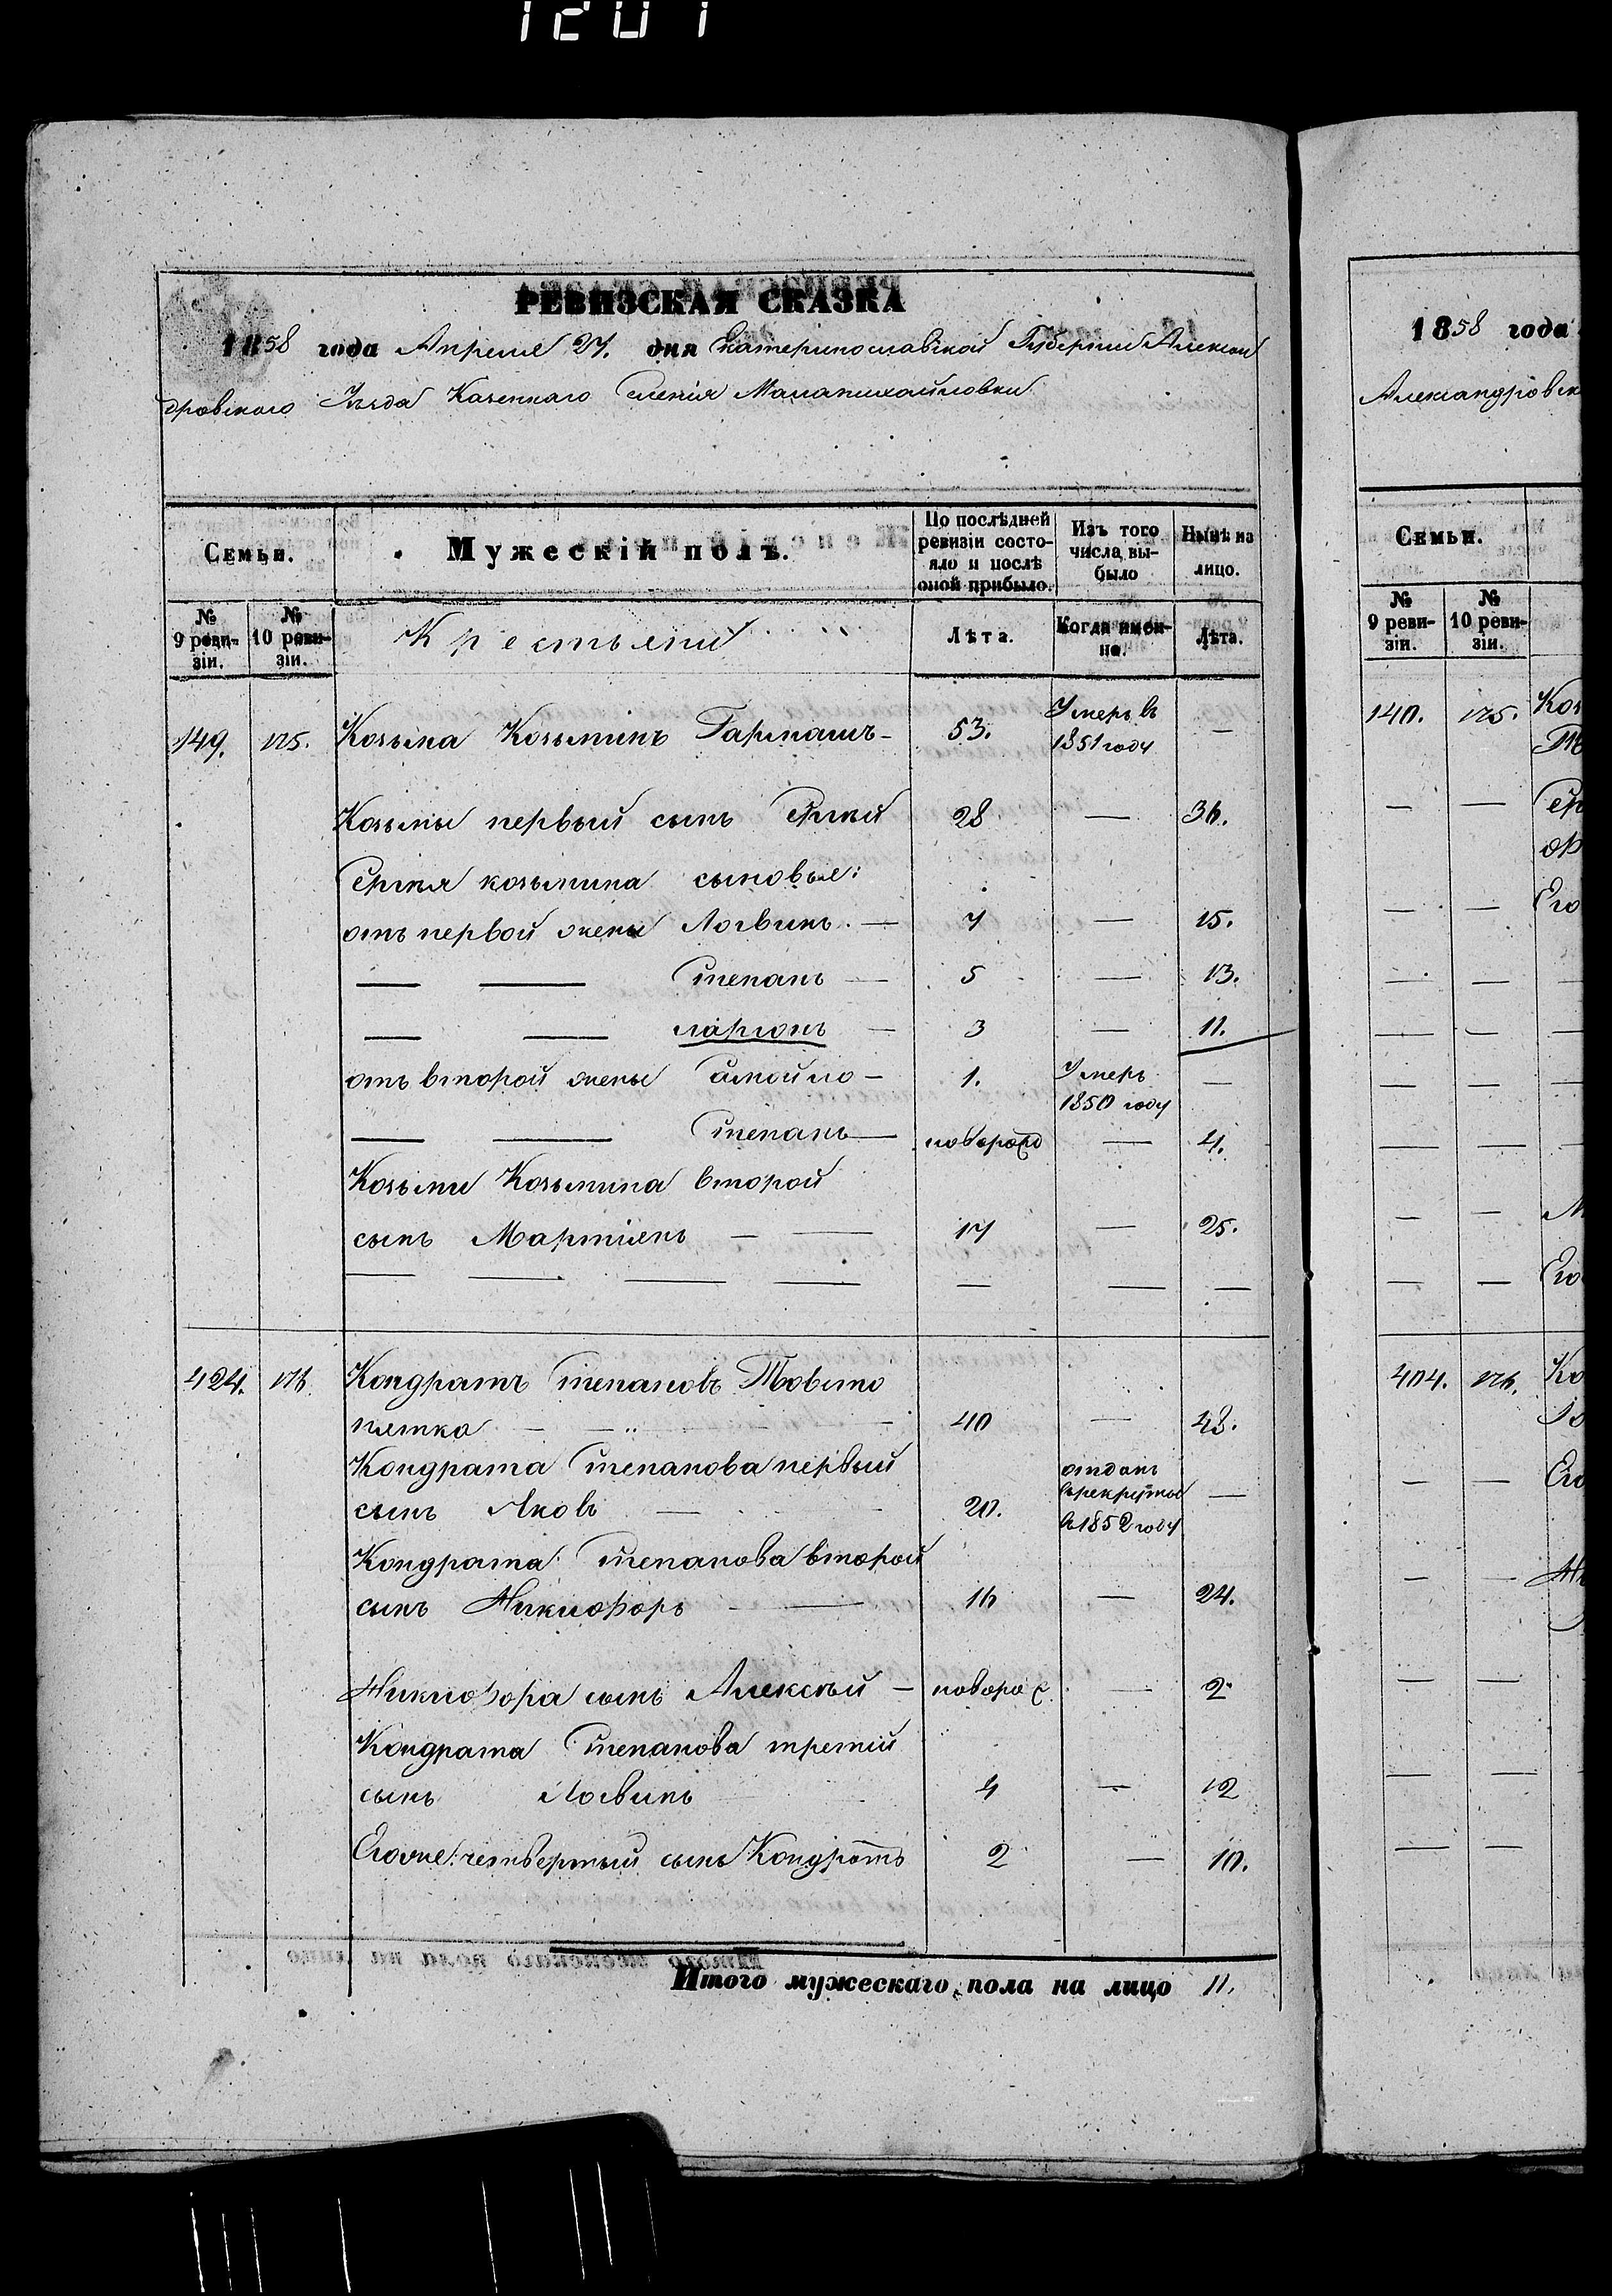 1201
РЕВИЗСКАЯ СКАЗКА
1858 года Апреля 27. дня Екатеринославской Губернии Алексан
дровского Уѣзда Казеннаго Селенія Маламихайловки
Семьи.
Мужескій полъ.
По послѣдней ревизіи состояло и послѣ оной прибыло.
Изъ того числа выбыло
Нынѣ на лицо.
№ 9 ревизіи.
№ 10 ревизіи.
Крестьяни
Лѣта.
Когда именно.
Лѣта.
149. 125. Козьма Козьминъ Гармашъ - 53. Умеръ в 1851 году —
Козьмы первый сынъ Сергѣй 28 — 36.
Сергѣя козьмина сыновья:
отъ первой жены Логвинъ. — 7 — 15.
— — Степанъ — 5 — 13.
— — ларионъ — 3 — 11.
отъ второй жены Самойло - 1. Умеръ 1850 году —
— — Степанъ — новорожд — 4.
Козьмы Козьмина второй
сынъ Мартінъ — — 17 — 25.
— — — — — — —
424. 126. Кондратъ Степановъ Товсто
пятко — — 40 — 48.
Кондрата Степанова первый
сынъ Яковъ — 20. отданъ в рекруты в 1852 году —
Кондрата Степанова второй
сынъ Никифоръ — 16 — 24.
Никифора сынъ Алексѣй — новорож — 2
Кондрата Степанова третій
сынъ Логвинъ 4 — 12
Егоже четвертый сынъ Кондратъ 2 — 10.
Итого мужескаго пола на лицо 11.
1858 года
Александровск
Семьи.
№ 9 ревизіи.
№ 10 ревизіи.
140. 125. Коз
— — Сер
— — Его
— —
— —
— —
— —
— —
— — Его
404. 126. Ко
— — Его
— —
— —
— —
— —